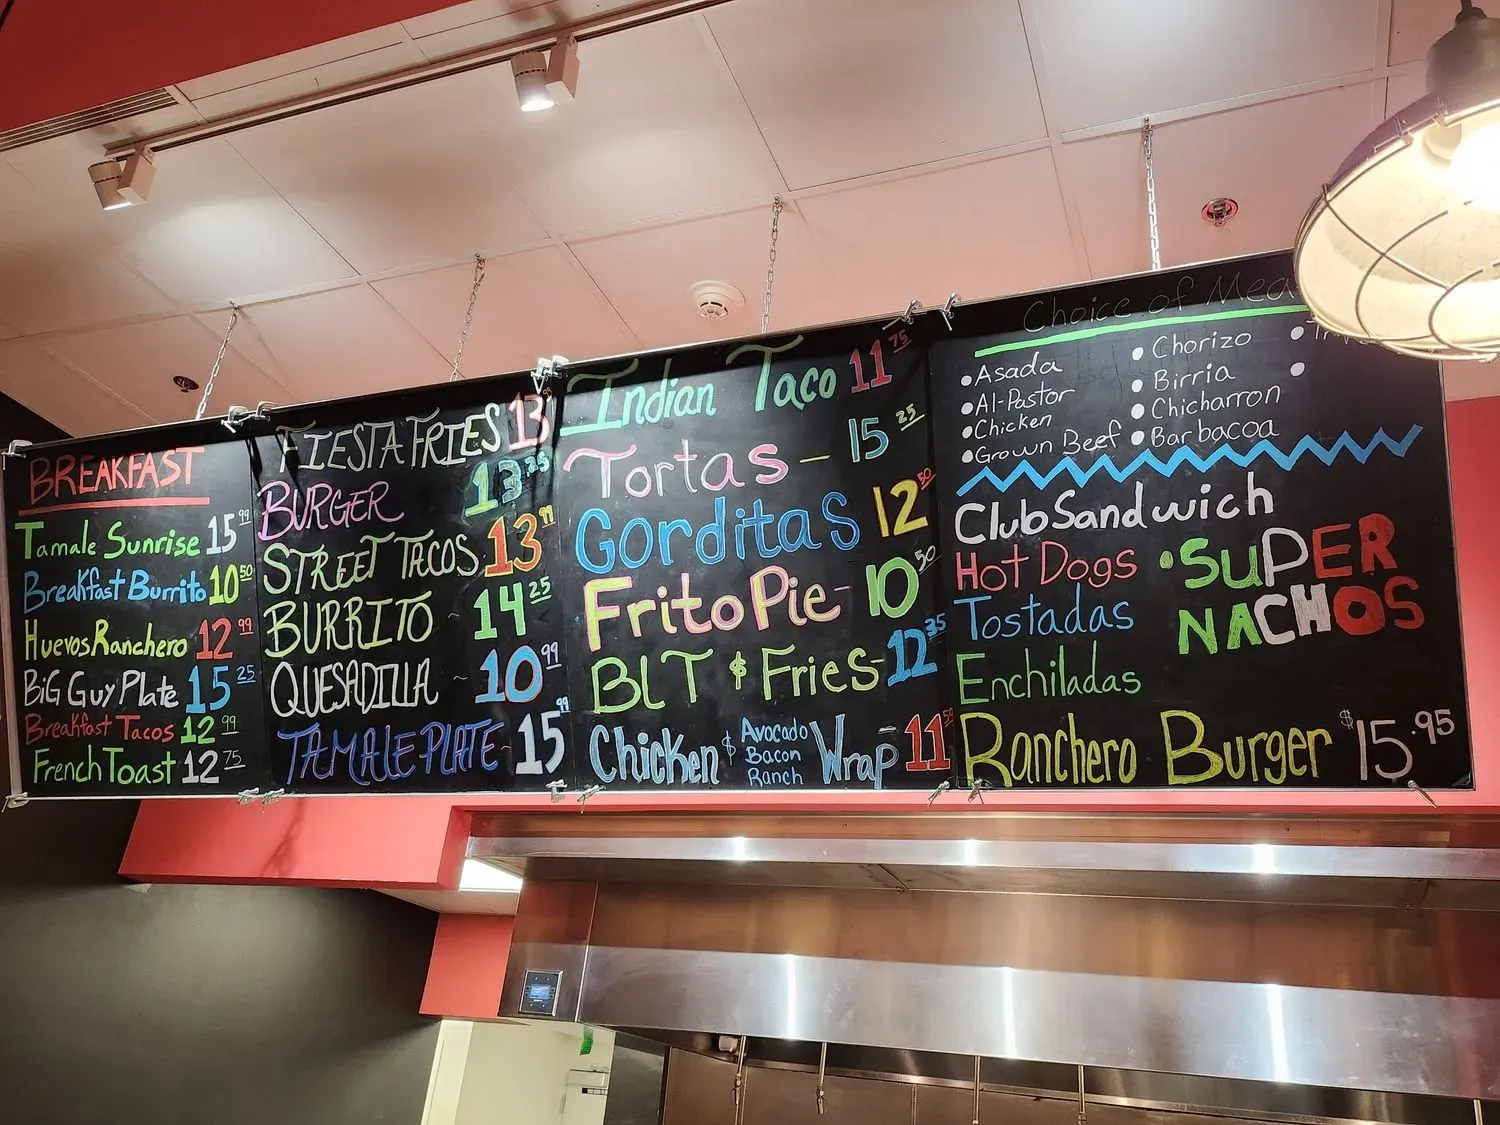 BREAKFAST
Tamale Sunrise 15 99
Breakfast Burrito 10 50
Huevos Ranchero 12 99
BiG Guy Plate 15 25
Breakfast Tacos 12 99
French Toast 12 75
FIESTA FRIES 13
BURGER 13
STREET TACOS 13 99
BURRITO ~ 14 25
QUESADILLA ~ 10 99
TAMALE PLATE - 15 99
Indian Taco 11 75
Tortas - 15 25
Gorditas 12 50
Frito Pie - 10 50
BLT $ Fries - 12 35
Chicken $ Avocado Bacon Ranch Wrap - 11
Choice of
• Asada
• Al-Pastor
• Chicken
• Grown Beef
• Chorizo
• Birria
• Chicharron
• Barbacoa
Club Sandwich
Hot Dogs
Tostadas
Enchiladas
• SUPER
NACHOS
Ranchero Burger $15.95